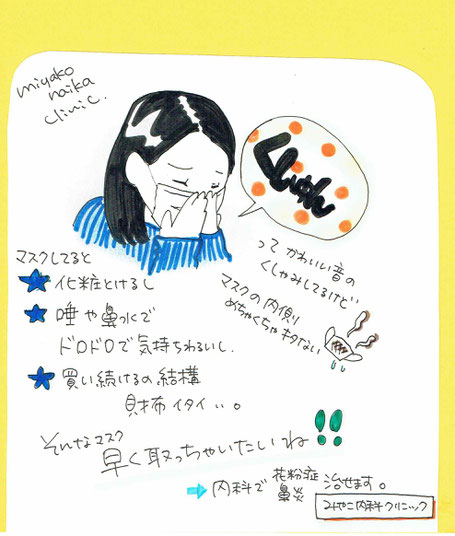 miyako
naika
clinic.
くしゅん
って かわいい音の
くしゃみしてるけど
マスクの内側
めちゃくちゃキタない
マスクしてると
★ 化粧とけるし
★ 唾や鼻水で
ドロドロで気持ちわるいし、
★ 買い続けるの結構
財布イタイ…。
そんなマスク
早く取っちゃいたいね!!
➡ 内科で 花粉症 鼻炎 治せます。
みやこ内科クリニック